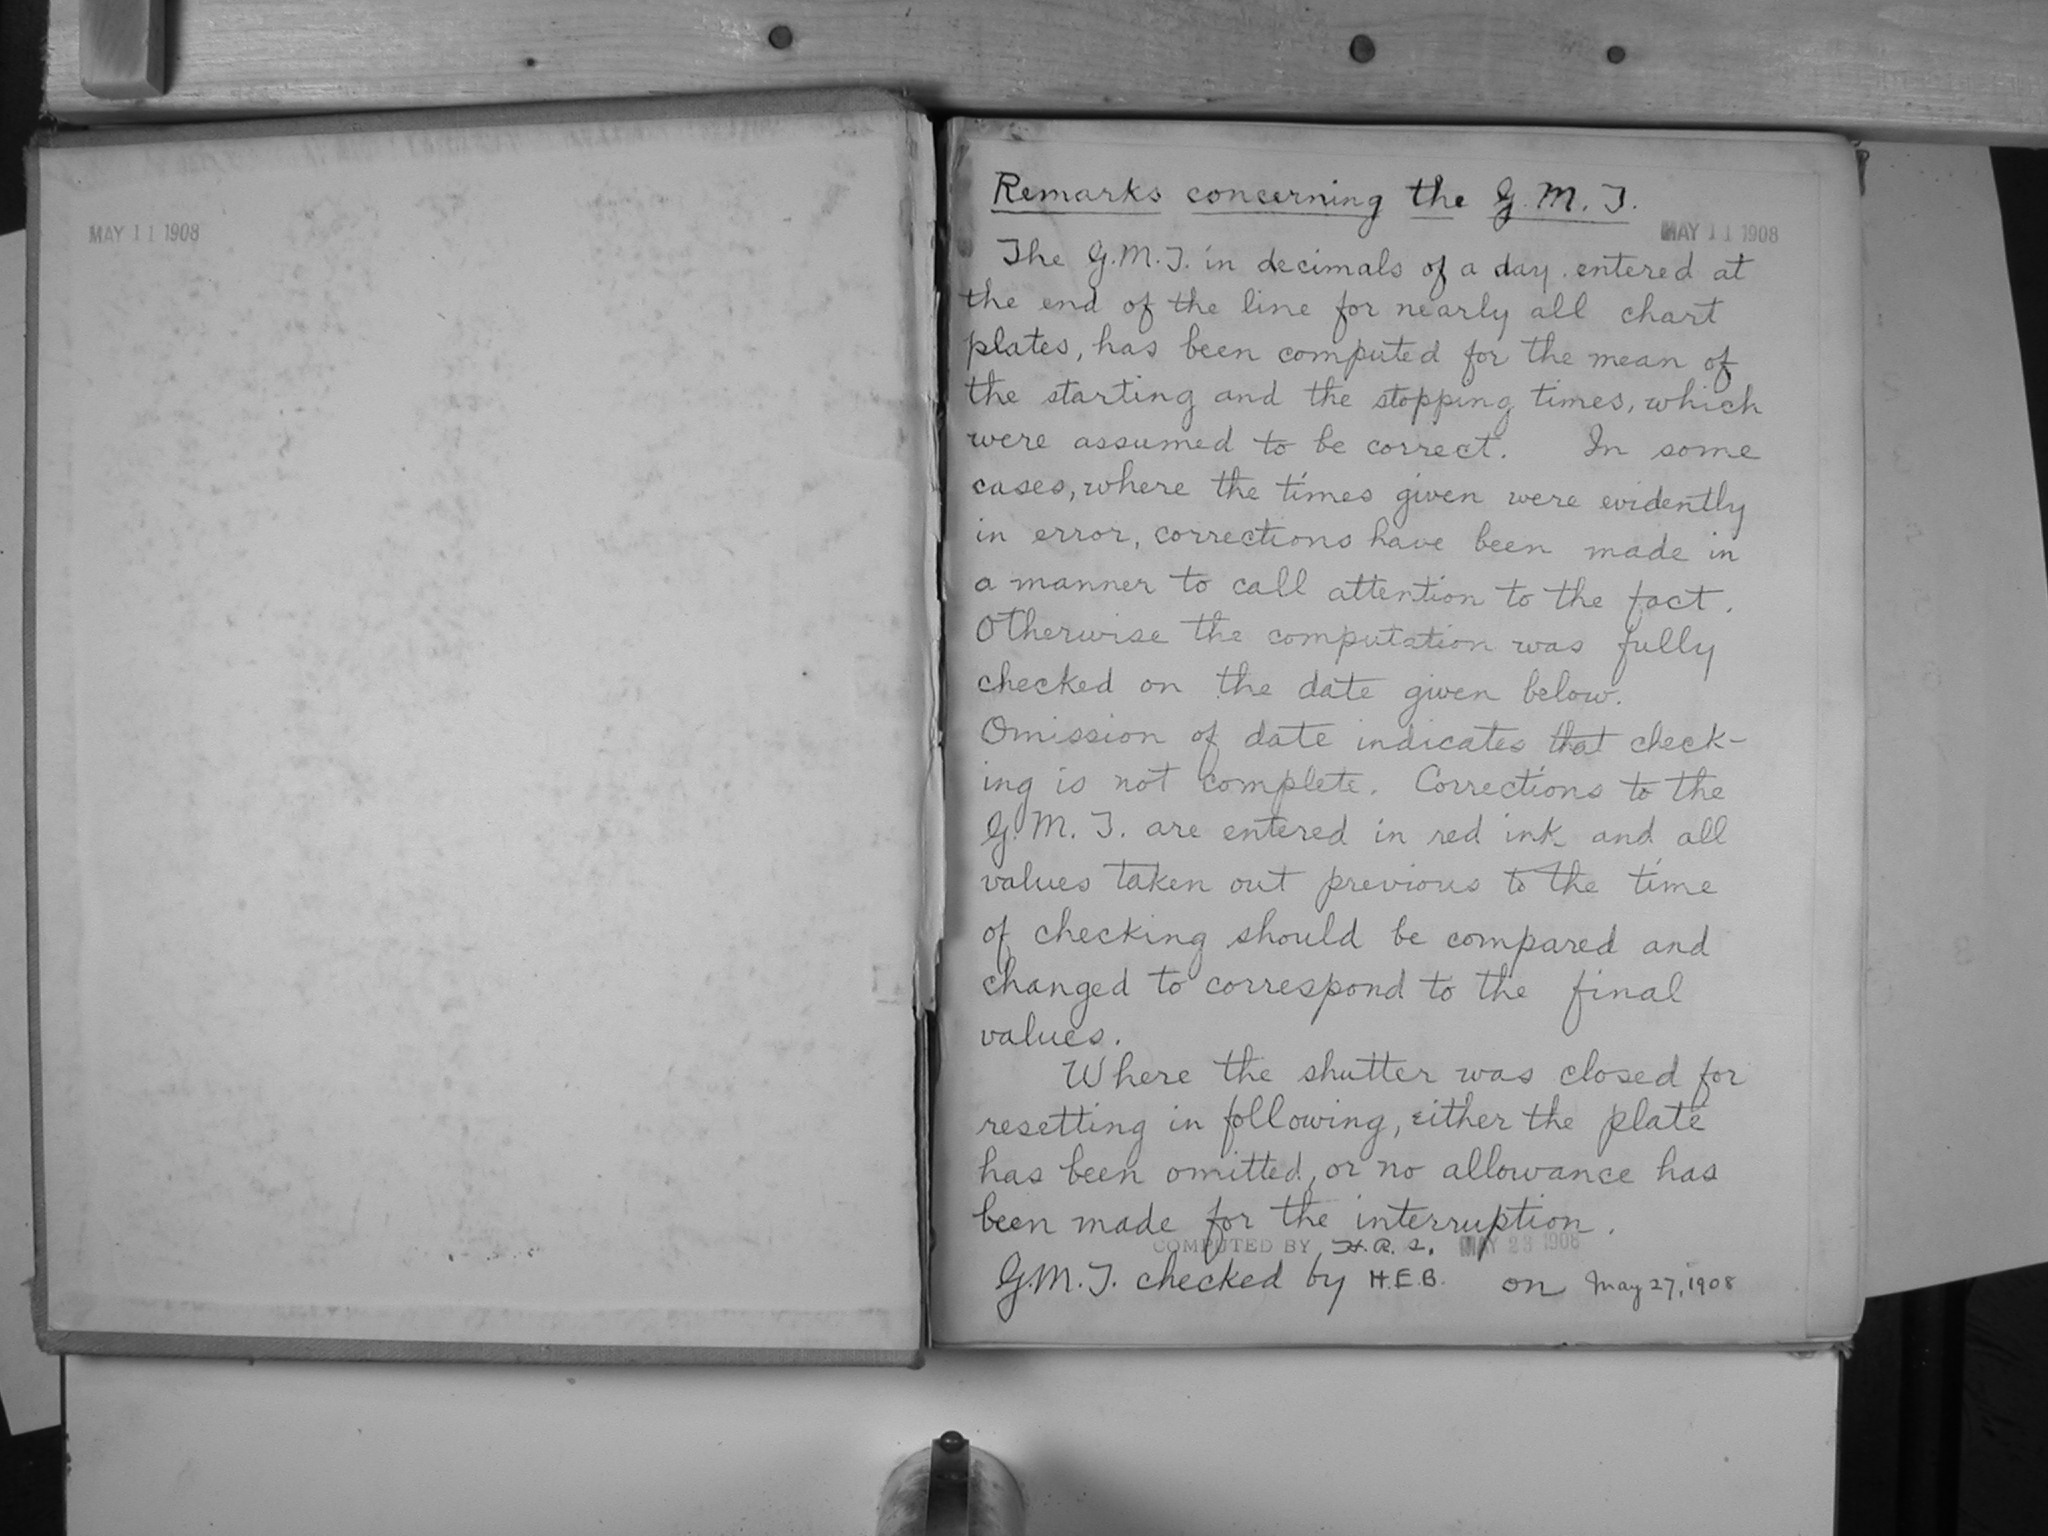 MAY 11 1908
Remarks concerning the G.M.T.
MAY 11 1908
The G.M.T. in decimals of a day entered at
the end of the line for nearly all chart
plates, has been computed for the mean of
the starting and the stopping times, which
were assumed to be correct. In some
cases, where the times given were evidently
in error, corrections have been made in
a manner to call attention to the fact.
Otherwise the computation was fully
checked on the date given below.
Omission of date indicates that check-
ing is not complete. Corrections to the
G.M.T. are entered in red ink and all
values taken out previous to the time
of checking should be compared and
changed to correspond to the final
values.
Where the shutter was closed for
resetting in following, either the plate
has been omitted, or no allowance has
been made for the interruption.
COMPUTED BY MAY 23 1908
G.M.T. checked by H.E.B. on May 27, 1908